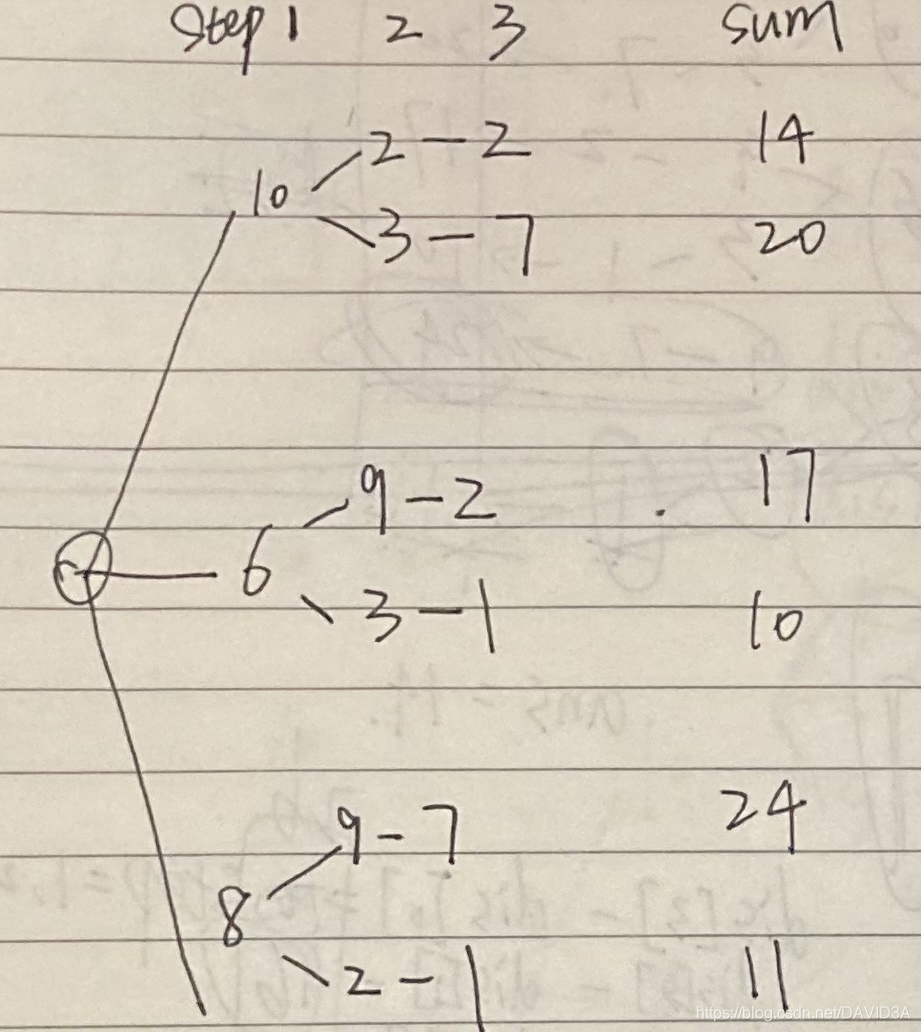 Step 1 2 3 sum
2 - 2 14
10
3 - 7 20
9 - 2 17
6
3 - 1 10
9 - 7 24
8
2 - 1 11
https://blog.csdn.net/DAVID3A